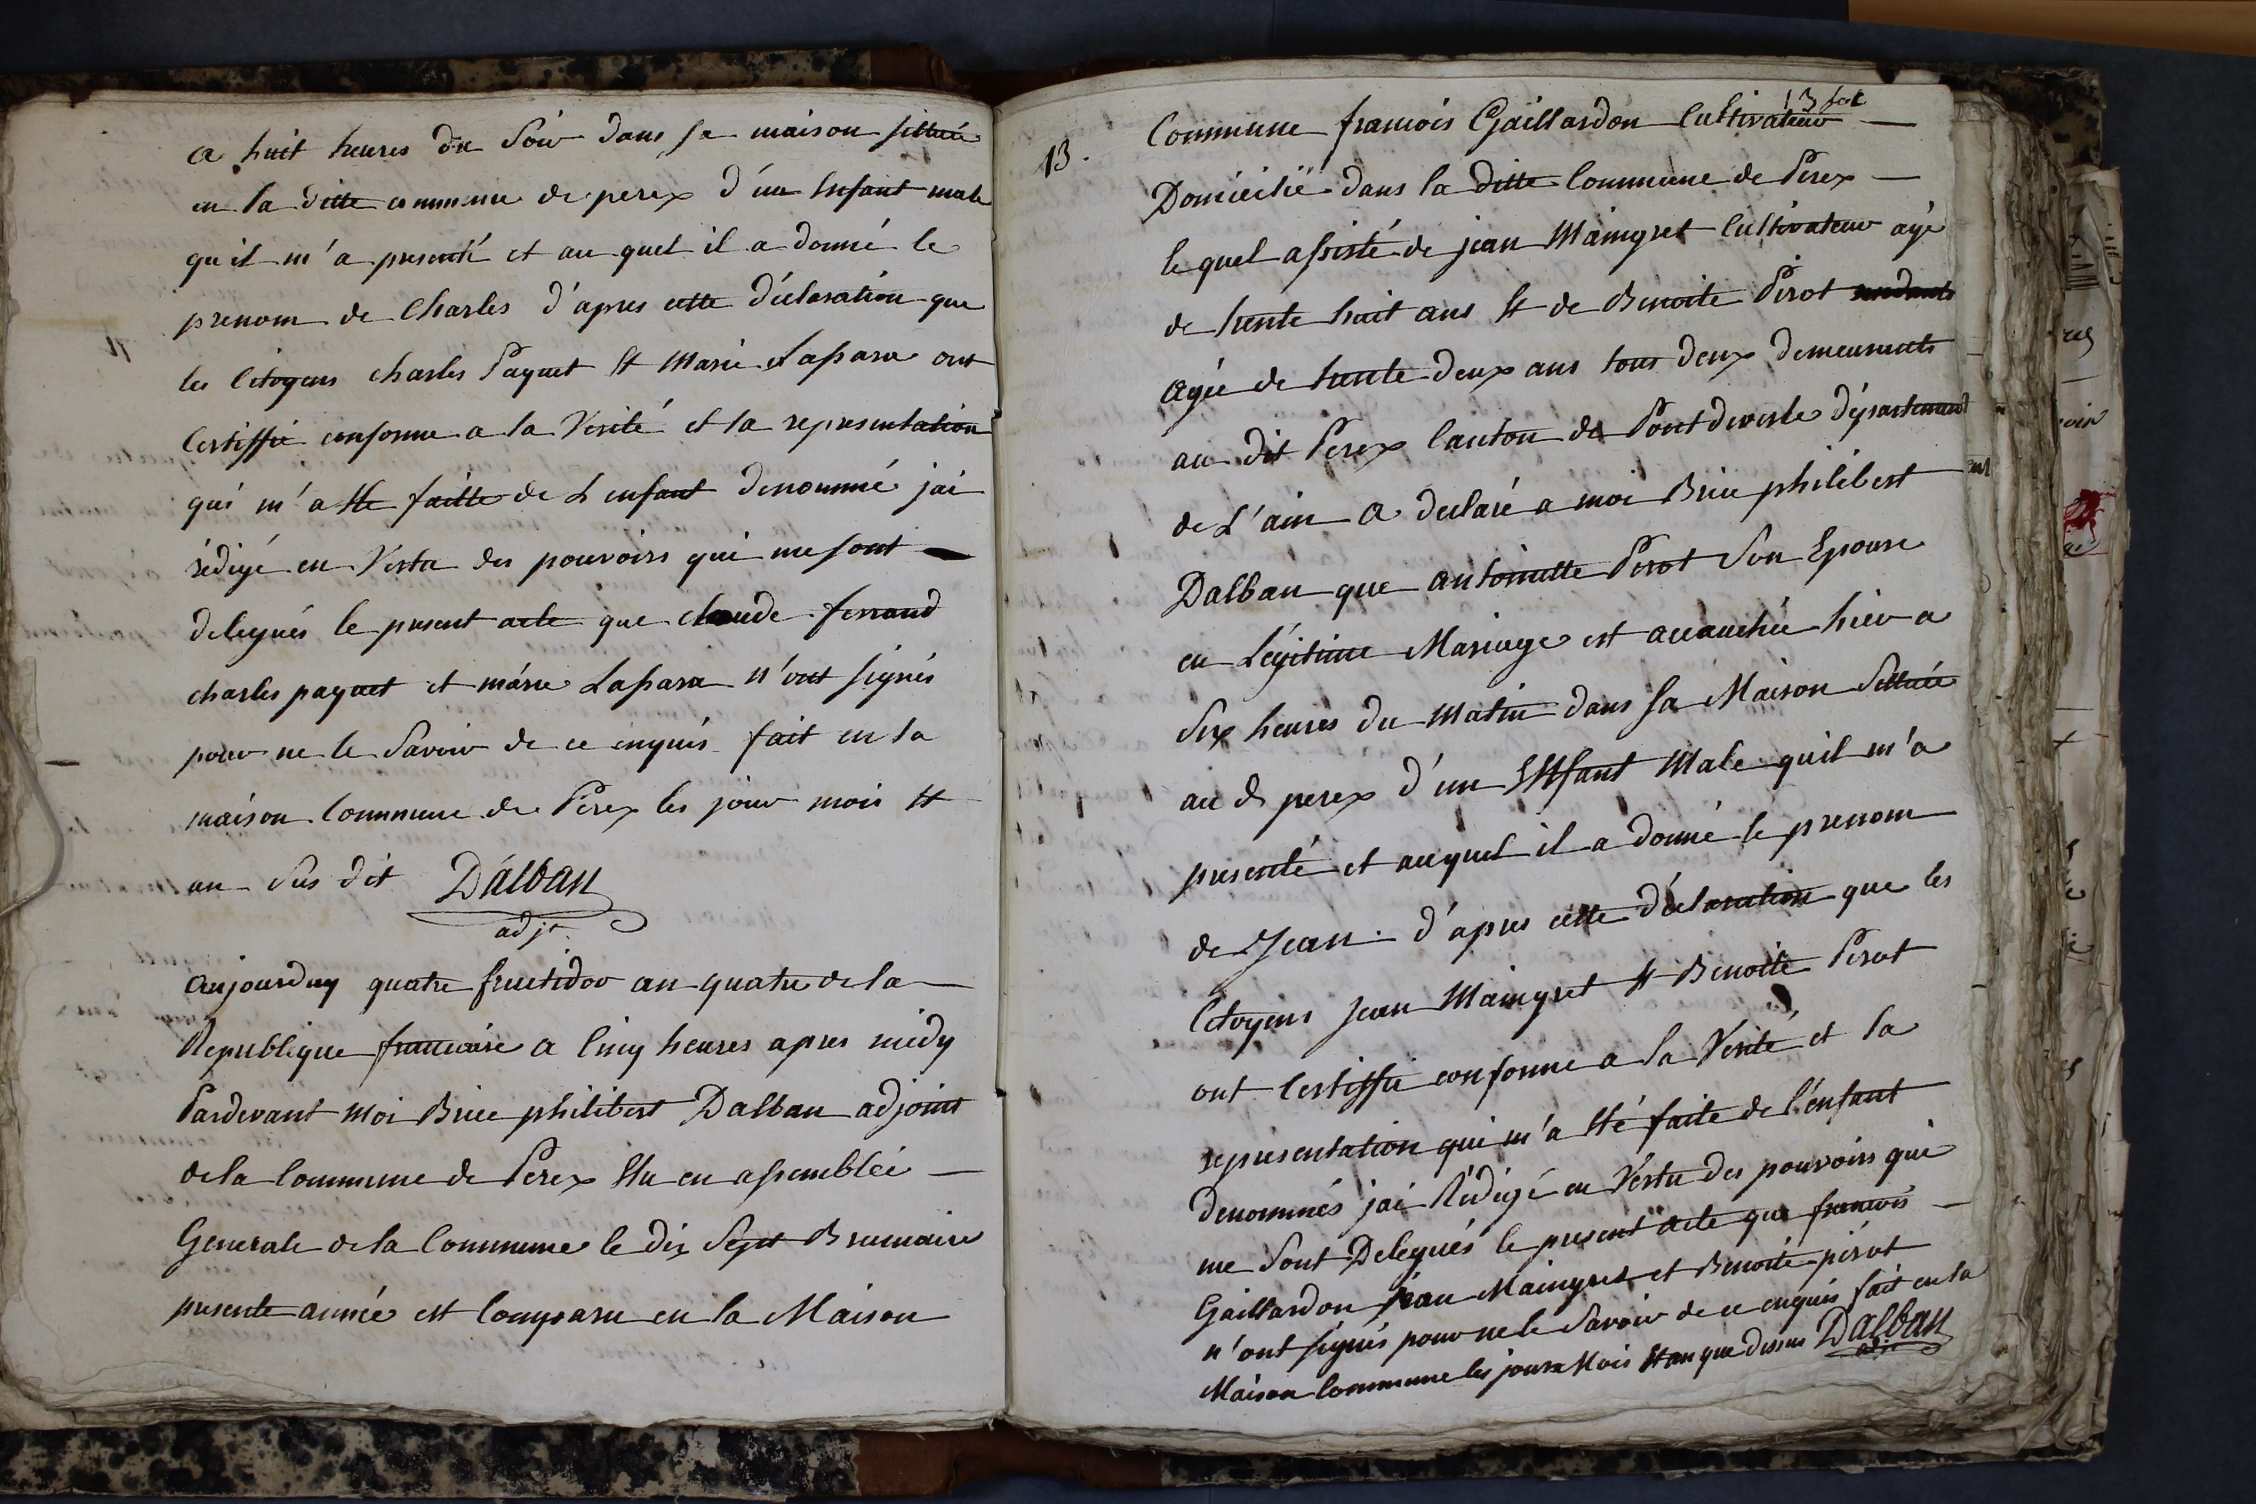 a huit heures du soir dans sa maison sittuée
en la ditte commune de perex d'un Enfant male
qu'il m'a presenté et au quel il a donné le
prenom de Charles d'apres cette déclaration que
les Citoyens charles Paquet Et Marie Lassara ont
Certiffié conforme a la Verité et la representation
qui m'a Ete faitte de L'enfant denommé jai
rédigé en Vertu des pouvoirs qui me sont
delegués le present acte que claude ferrand
charles paquet et marie Lassara n'ont signés
pour ne le savoir de ce enquis fait en la
maison Commune de Perex les jour mois Et
an sus dit Dalban
adjt.
aujourduy quatre fructidor an quatre de la
Republique francaise a Cinq heures apres midy
Pardevant moi Brice philibert Dalban adjoint
de la Commune de Perex Elu en assemblée
Generale de la Commune le dix sept Brumaire
presente année est Comparu en la Maison
13 fet
13.
Commune francois Gaillardon Cultivateur
Domicilié dans la ditte Commune de Perex
le quel assisté de jean Maingret Cultivateur agé
de trente huit ans Et de Benoite Perot
agée de trente deux ans tous deux demeurants
au dit Perex Canton de Pontdevesle département
de L'ain a declaré a moi Brice philibert
Dalban que antoinette Perot son Epouse
en Légitime Mariage est accauchée hier a
six heures du matin dans sa Maison sittuée
au d perex d'un Enfant Male quil m'a
presenté et auquel il a donné le prenom
de Jean. d'apres cette déclaration que les
Citoyens Jean Maingret Et Benoite Perot
ont Certiffié conforme a la Verité et la
representation qui m'a Eté faite de l'enfant
denommés jai Rédigé en Vertu des pouvoirs qui
me sont Delegués le present acte que francois
Gaillardon jean Maingret et Benoite pérot
n'ont signés pour ne le savoir de ce enquis fait en la
Maison Commune les jours Mois Et an que dessus Dalban
adjt